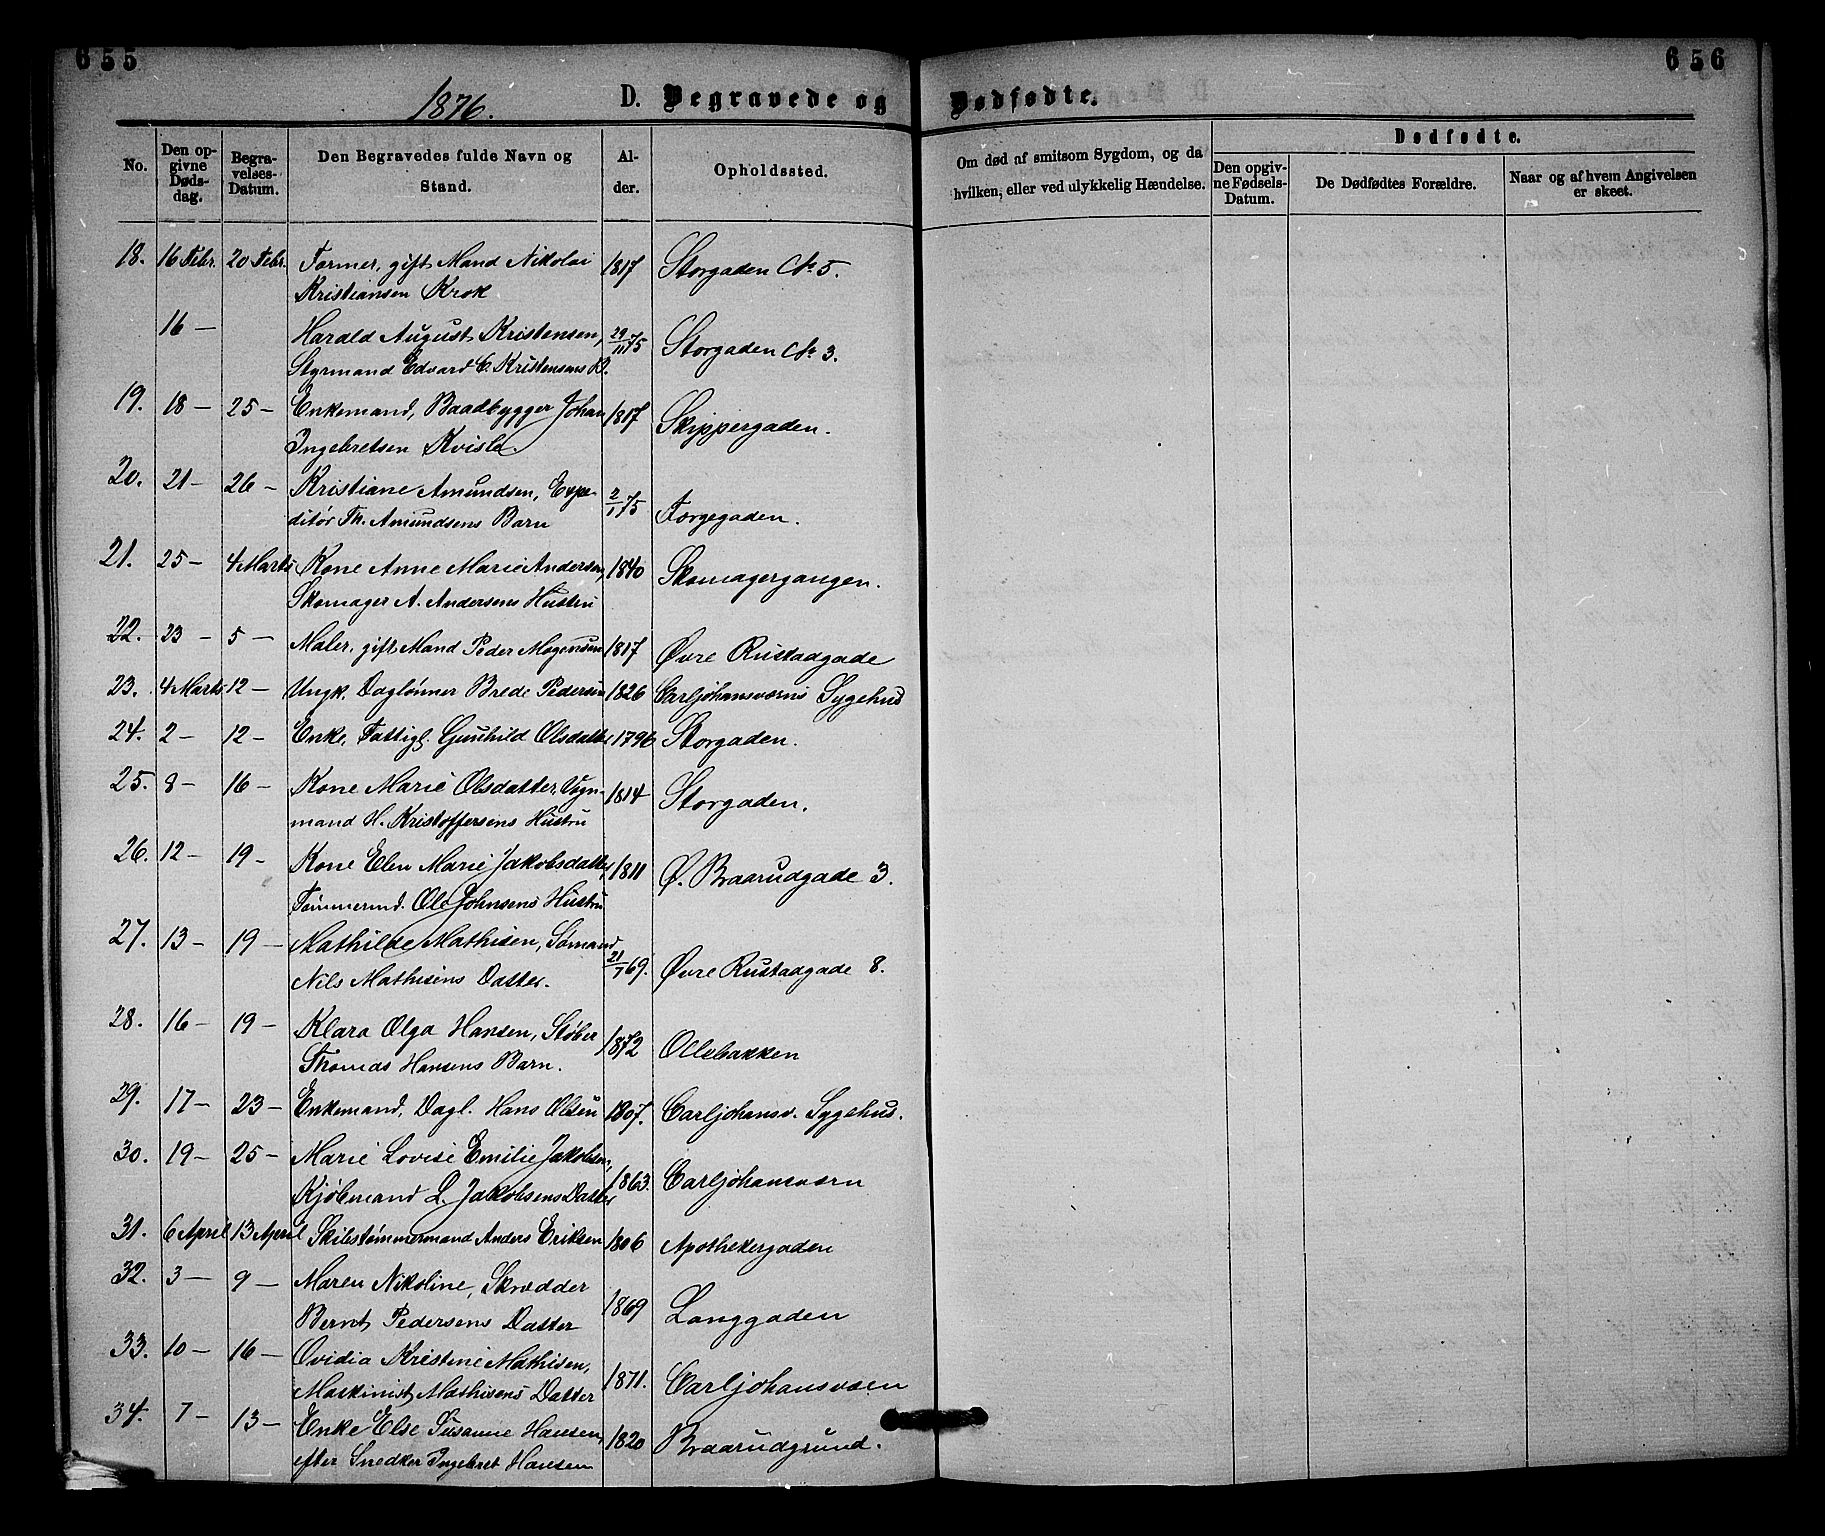 655
656
1876.
D. Begravede og Dødfødte.
No.
Den opgivne Dødsdag.
Begravelses-Datum.
Den Begravedes fulde Navn og Stand.
Alder.
Opholdssted.
Om død af smitsom Sygdom, og da hvilken, eller ved ulykkelig Hændelse.
Dødfødte.
Den opgivne Fødsels-Datum.
De Dødfødtes Forældre.
Naar og af hvem Angivelsen er skeet.
18. 16 Febr. 20 Febr. Former, gift Mand Nikolai 1817 Storgaden No 5.
Kristiansen Krok
16 — Harald August Kristensen, 29/11 75 Storgaden No 3.
Styrmand Edvard C. Kristensens B.
19. 18 — 25 — Enkemand, Baadbygger Johan 1817 Skippergaden.
Ingebretsen Kvisle.
20. 21 — 26 — Kristiane Amundsen, Expe- 2/1 75 Færgegaden.
ditør Th. Amundsens Barn
21. 25 — 4 Marts Kone Anne Marie Andersen, 1840 Skomagergangen.
Skomager A. Andersens Hustru
22. 23 — 5 — Maler, gift Mand Peder Mogensen 1817 Øvre Rustadgade
23. 4 Marts 12 — Ungk. Daglønner Brede Pedersen 1826 Carljohansværns Sygehus
24. 2 — 12 — Enke, Fattigl. Gunhild Olsdatter 1796 Storgaden.
25. 8 — 16 — Kone Marie Olsdatter, Vogn- 1814 Storgaden.
mand H. Kristoffersens Hustru
26. 12 — 19 — Kone Elen Marie Jakobsdatter, 1811 Ø. Braarudgade 3.
Tømmermd. Ole Johnsens Hustru
27. 13 — 19 — Mathilde Mathisen, Sømand 21/1 69. Øvre Rustadgade 8.
Nils Mathisens Datter.
28. 16 — 19 — Klara Olga Hansen, Støber 1872 Ollebakken
Thomas Hansens Barn.
29. 17 — 23 — Enkemand, Dagl. Hans Olsen 1807. Carljohansv. Sygehus.
30. 19 — 25 — Marie Lovise Emilie Jakobsen, 1863. Carljohansværn
Kjøbmand L. Jakobsens Datter
31. 6 April 13 April Skibstømmermand Anders Eriksen 1806 Apothekergaden
32. 3 — 9 — Maren Nikoline, Skrædder 1869 Langgaden
Bernt Pedersens Datter
33. 10 — 16 — Ovidia Kristine Mathisen, 1871. Carljohansvæen
Maskinist Mathisens Datter
34. 7 — 13 — Enke Else Susanne Hansen, 1820 Braarudgrund.
efter Snedker Ingebret Hansen